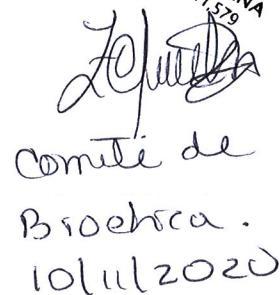 NA
.579
Comité de
Bioetica.
10/11/2020